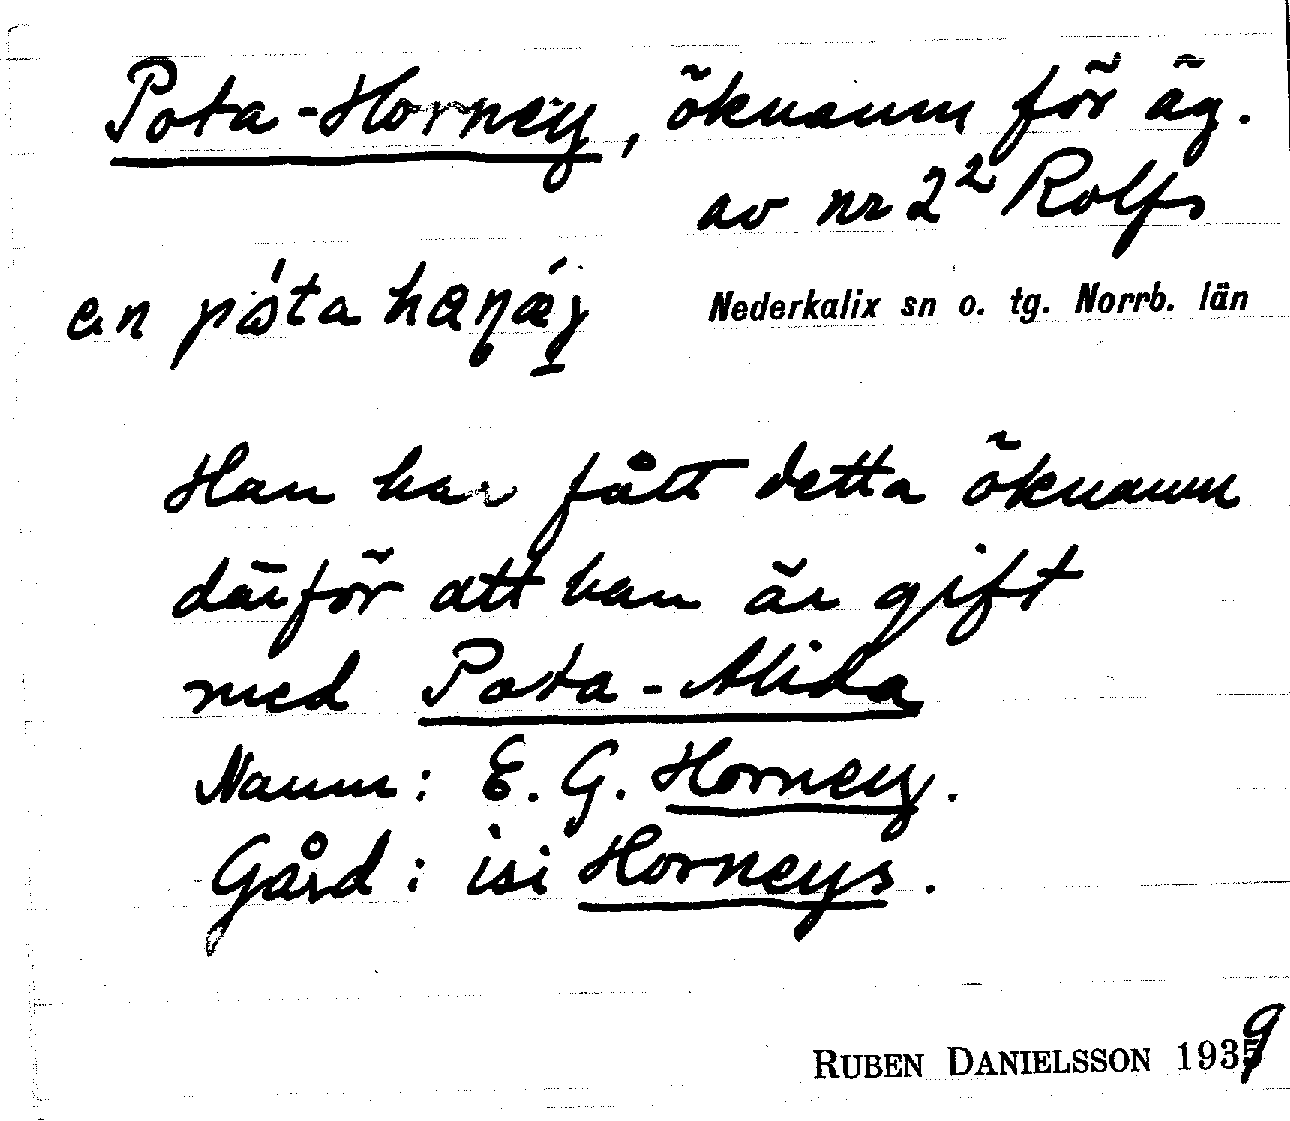 Pota-Horney, öknamn för äg.
av nr 2² Rolfs
Nederkalix sn o. tg. Norrb. län
Han har fått detta öknamn
därför att han är gift
med Pota-Alida
Namn: E. G. Horney.
Gård: isi Horneys.
RUBEN DANIELSSON 1939